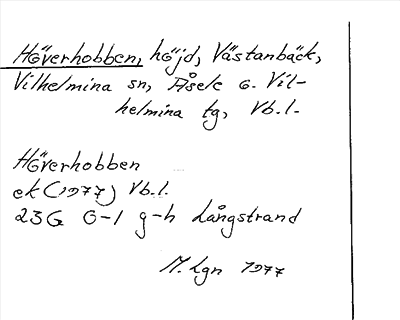 Höverhobben, höjd, Västanbäck,
Vilhelmina sn, Åsele o. Vil-
helmina tg, Vb.l.
Höverhobben
ek (1977) Vb.l.
23G 0-1 g-h Långstrand
M. Lgn 1977